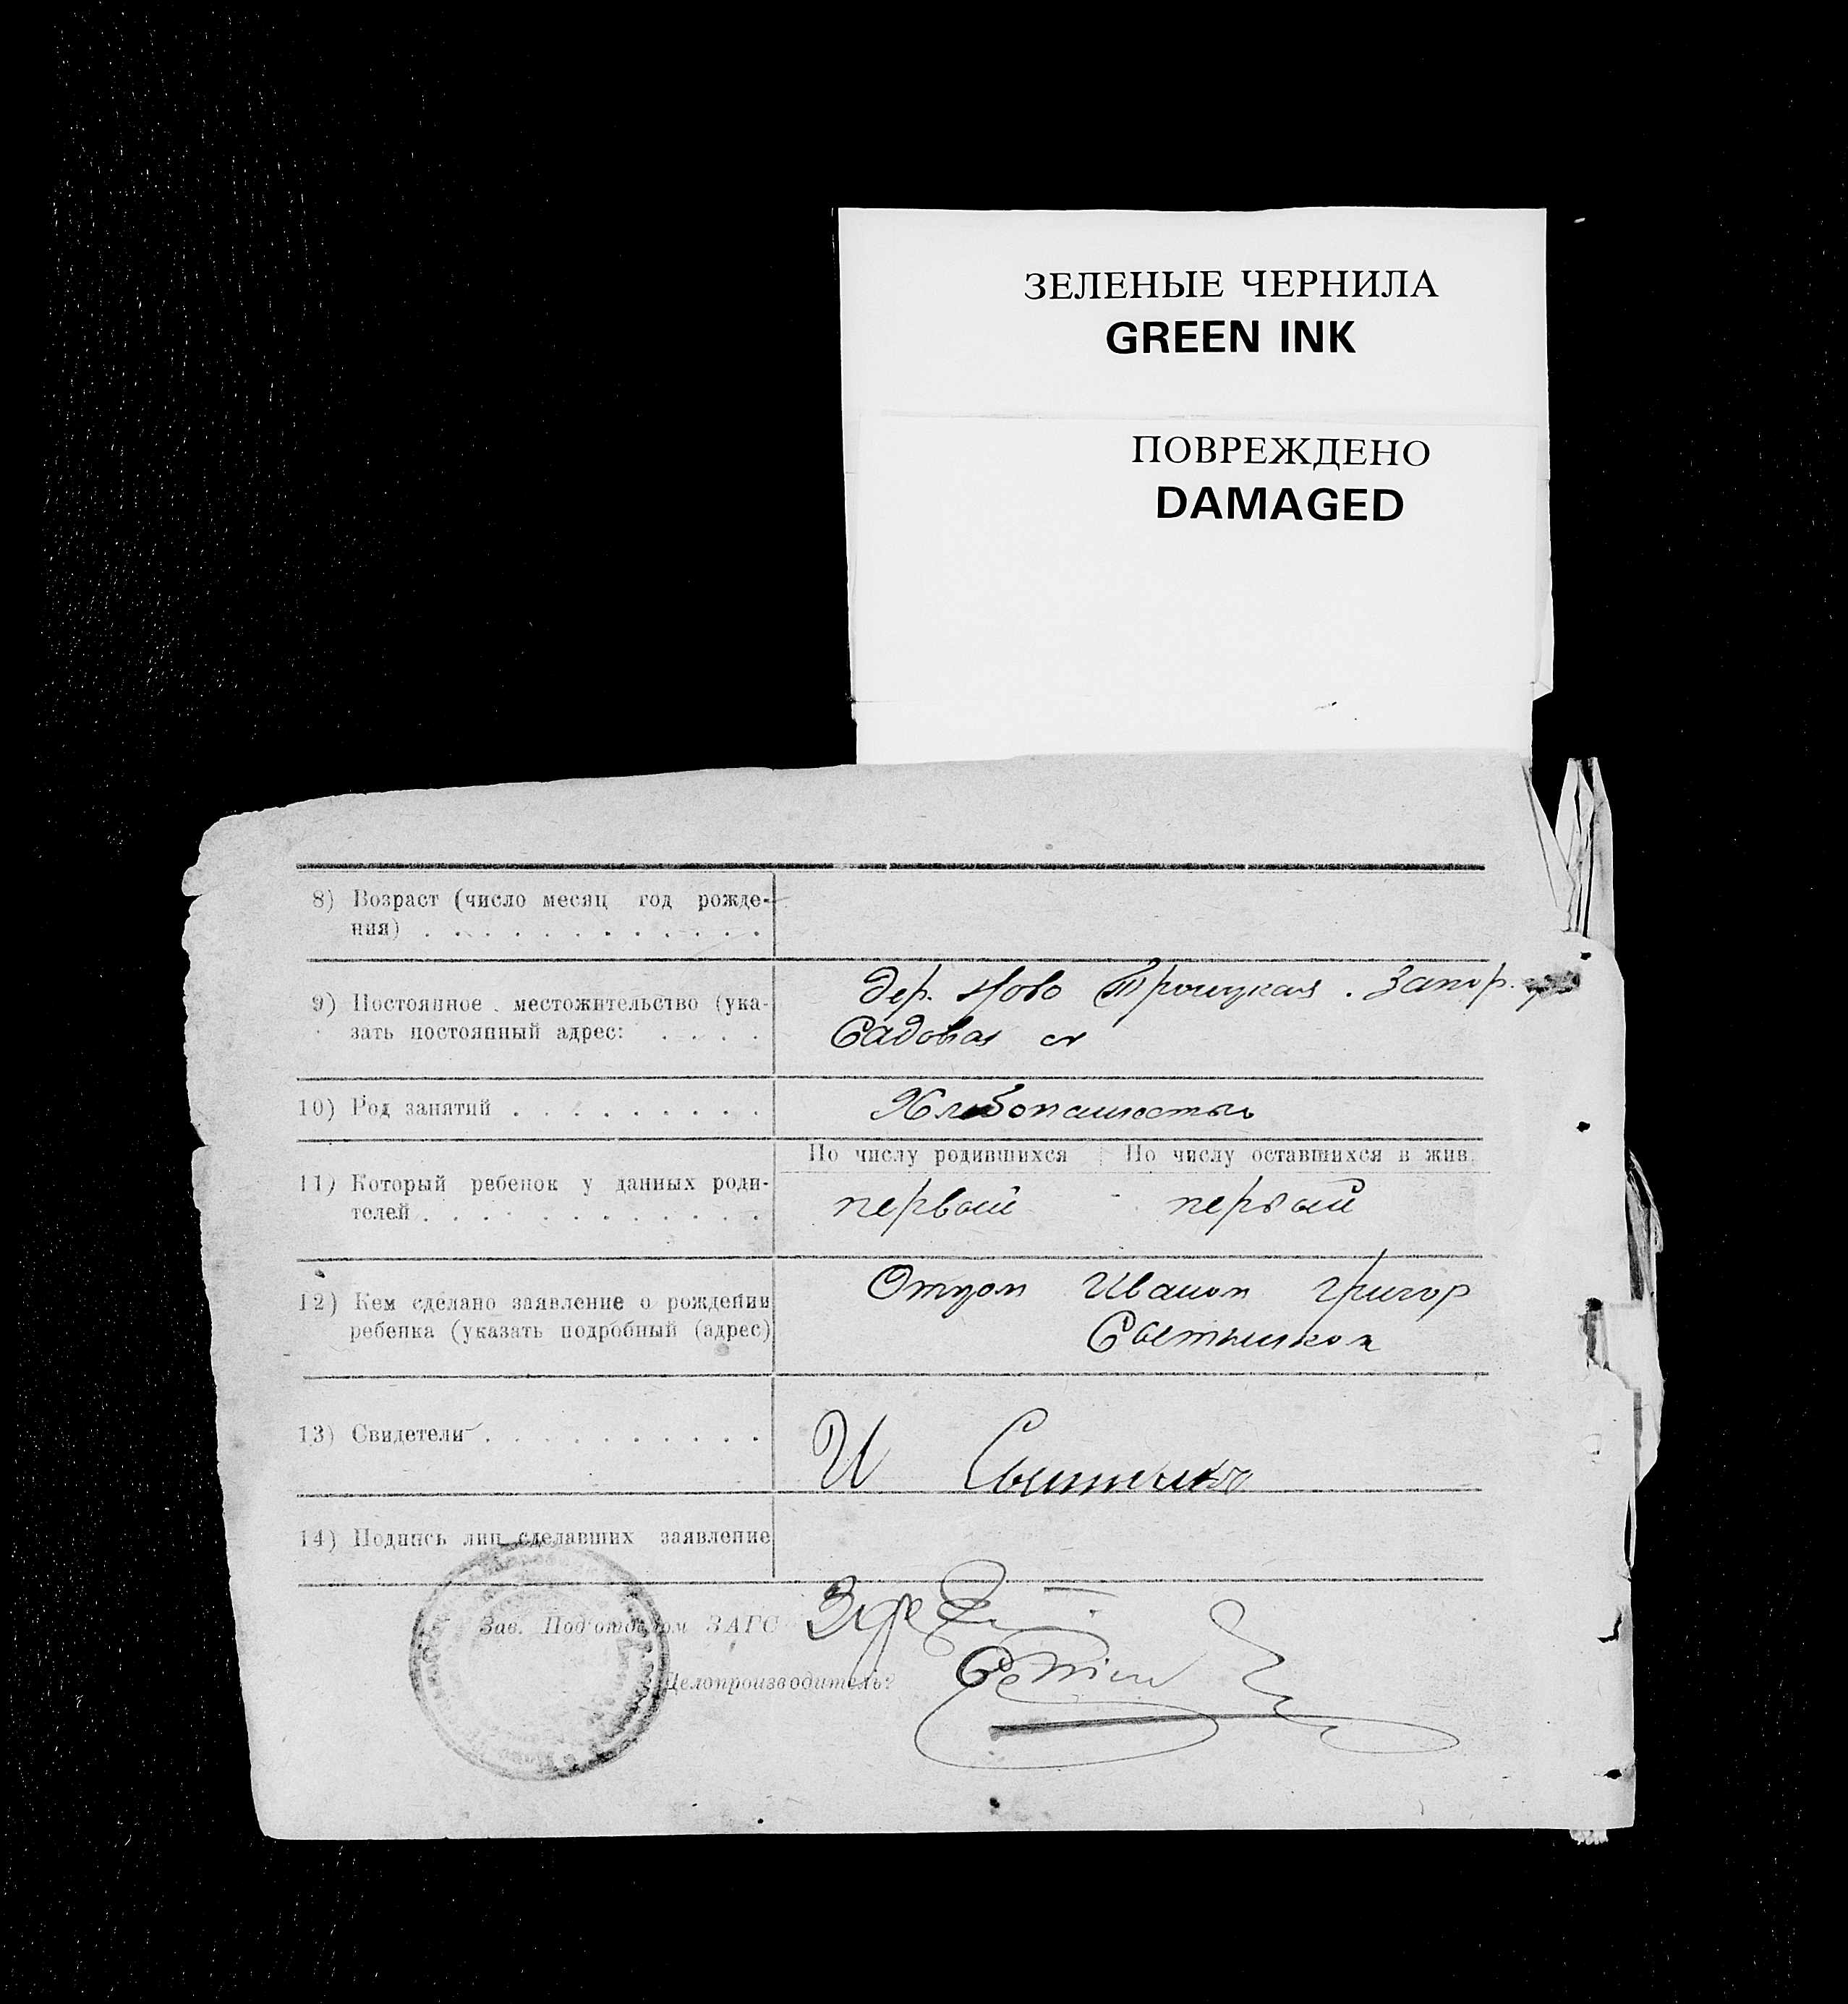 ЗЕЛЕНЫЕ ЧЕРНИЛА
GREEN INK
ПОВРЕЖДЕНО
DAMAGED
8) Возраст (число месяц год рожде-
ния) . . . . . . . . . . . .
9) Постоянное местожительство (ука-
зать постоянный адрес: . . . .
дер. Ново Троицкая . Запор.
Садовая
10) Род занятий . . . . . . . . .
Хлебопашество
По числу родившихся По числу оставшихся в жив.
11) Который ребенок у данных роди-
телей . . . . . . . . . . . .
первый первый
12) Кем сделано заявление о рождении
ребенка (указать подробный (адрес)
Отцом Иваном Григор
13) Свидетели . . . . . . . . . .
И
14) Подпись лиц сделавших заявление
Зав. Под'отделом ЗАГС
Делопроизводитель: